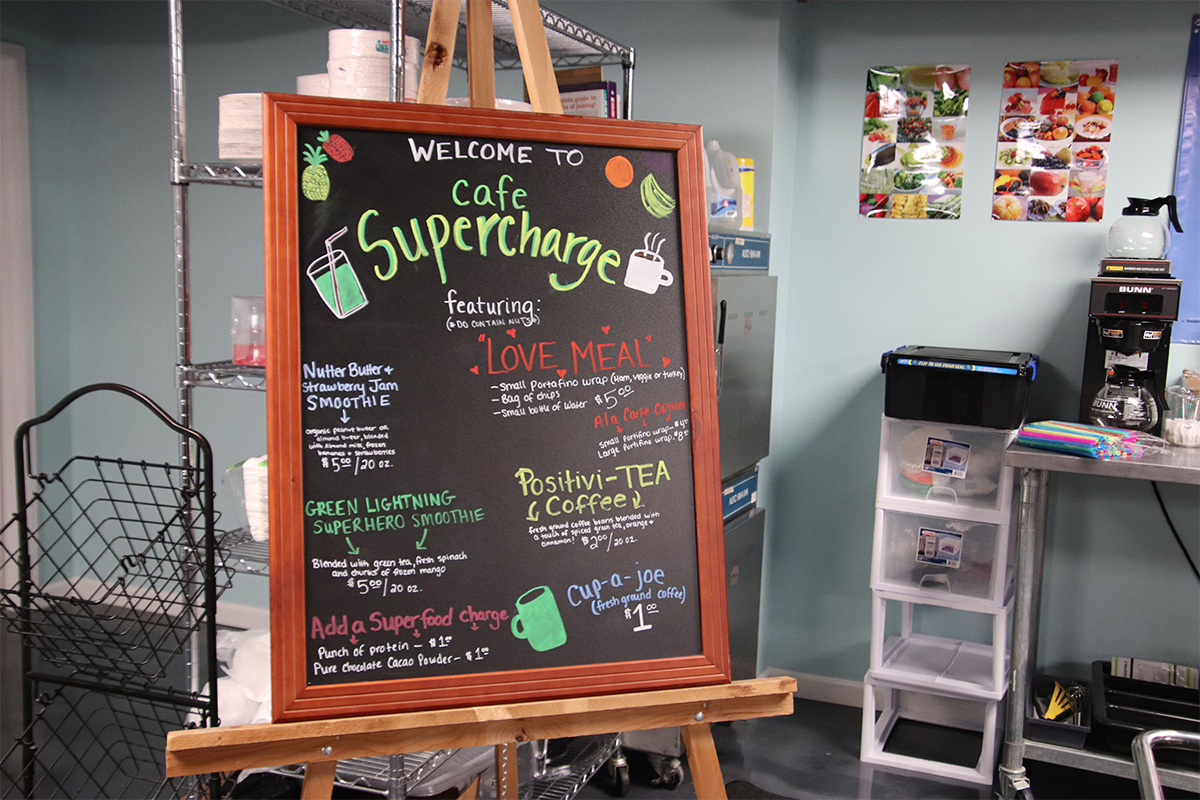 WELCOME TO
Cafe
Supercharge
featuring:
(* DO CONTAIN NUTS *)
"LOVE MEAL"
- Small Portafino wrap (Ham, veggie or turkey)
- Bag of chips
- Small bottle of Water $5.00
Ala Carte Option
Small Portifino wrap - $4.00
Large Portifino wrap. $8.00
Nutter Butter &
Strawberry Jam
SMOOTHIE
organic peanut butter or
almond butter, blended
with Almond milk, frozen
bananas & strawberries
$5.00/20 oz.
Positivi-TEA
Coffee
fresh ground coffee beans blended with
a touch of spiced green tea, orange &
cinnamon! $2.00/20oz.
GREEN LIGHTNING
SUPERHERO SMOOTHIE
Blended with green tea, fresh spinach
and chunks of frozen mango
$5.00/20 oz.
Cup-a-joe
(fresh ground coffee)
$1.00
Add a Superfood charge
Punch of protein - $1.00
Pure Chocolate Cacao Powder - $1.00
BUNN
BUNN